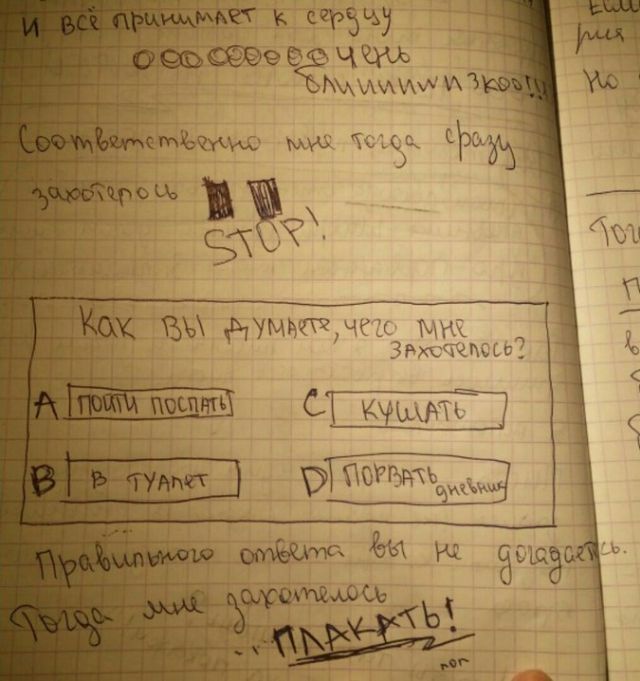 И ВСЁ ПРИНИМАЕТ К СЕРДЦУ
ОООООООООЧЕНЬ
БЛИИИИИИЗКОО!!!
Соответственно мне тогда сразу
захотелось
STOP!
КАК ВЫ ДУМАЕТЕ, ЧЕГО МНЕ
ЗАХОТЕЛОСЬ?
A ПОЙТИ ПОСПАТЬ
C КУШАТЬ
B В ТУАЛЕТ
D ПОРВАТЬ
дневник
Правильного ответа вы не догадаетсь.
Тогда мне захотелось
...ПЛАКАТЬ!
Но
Тог
П
в